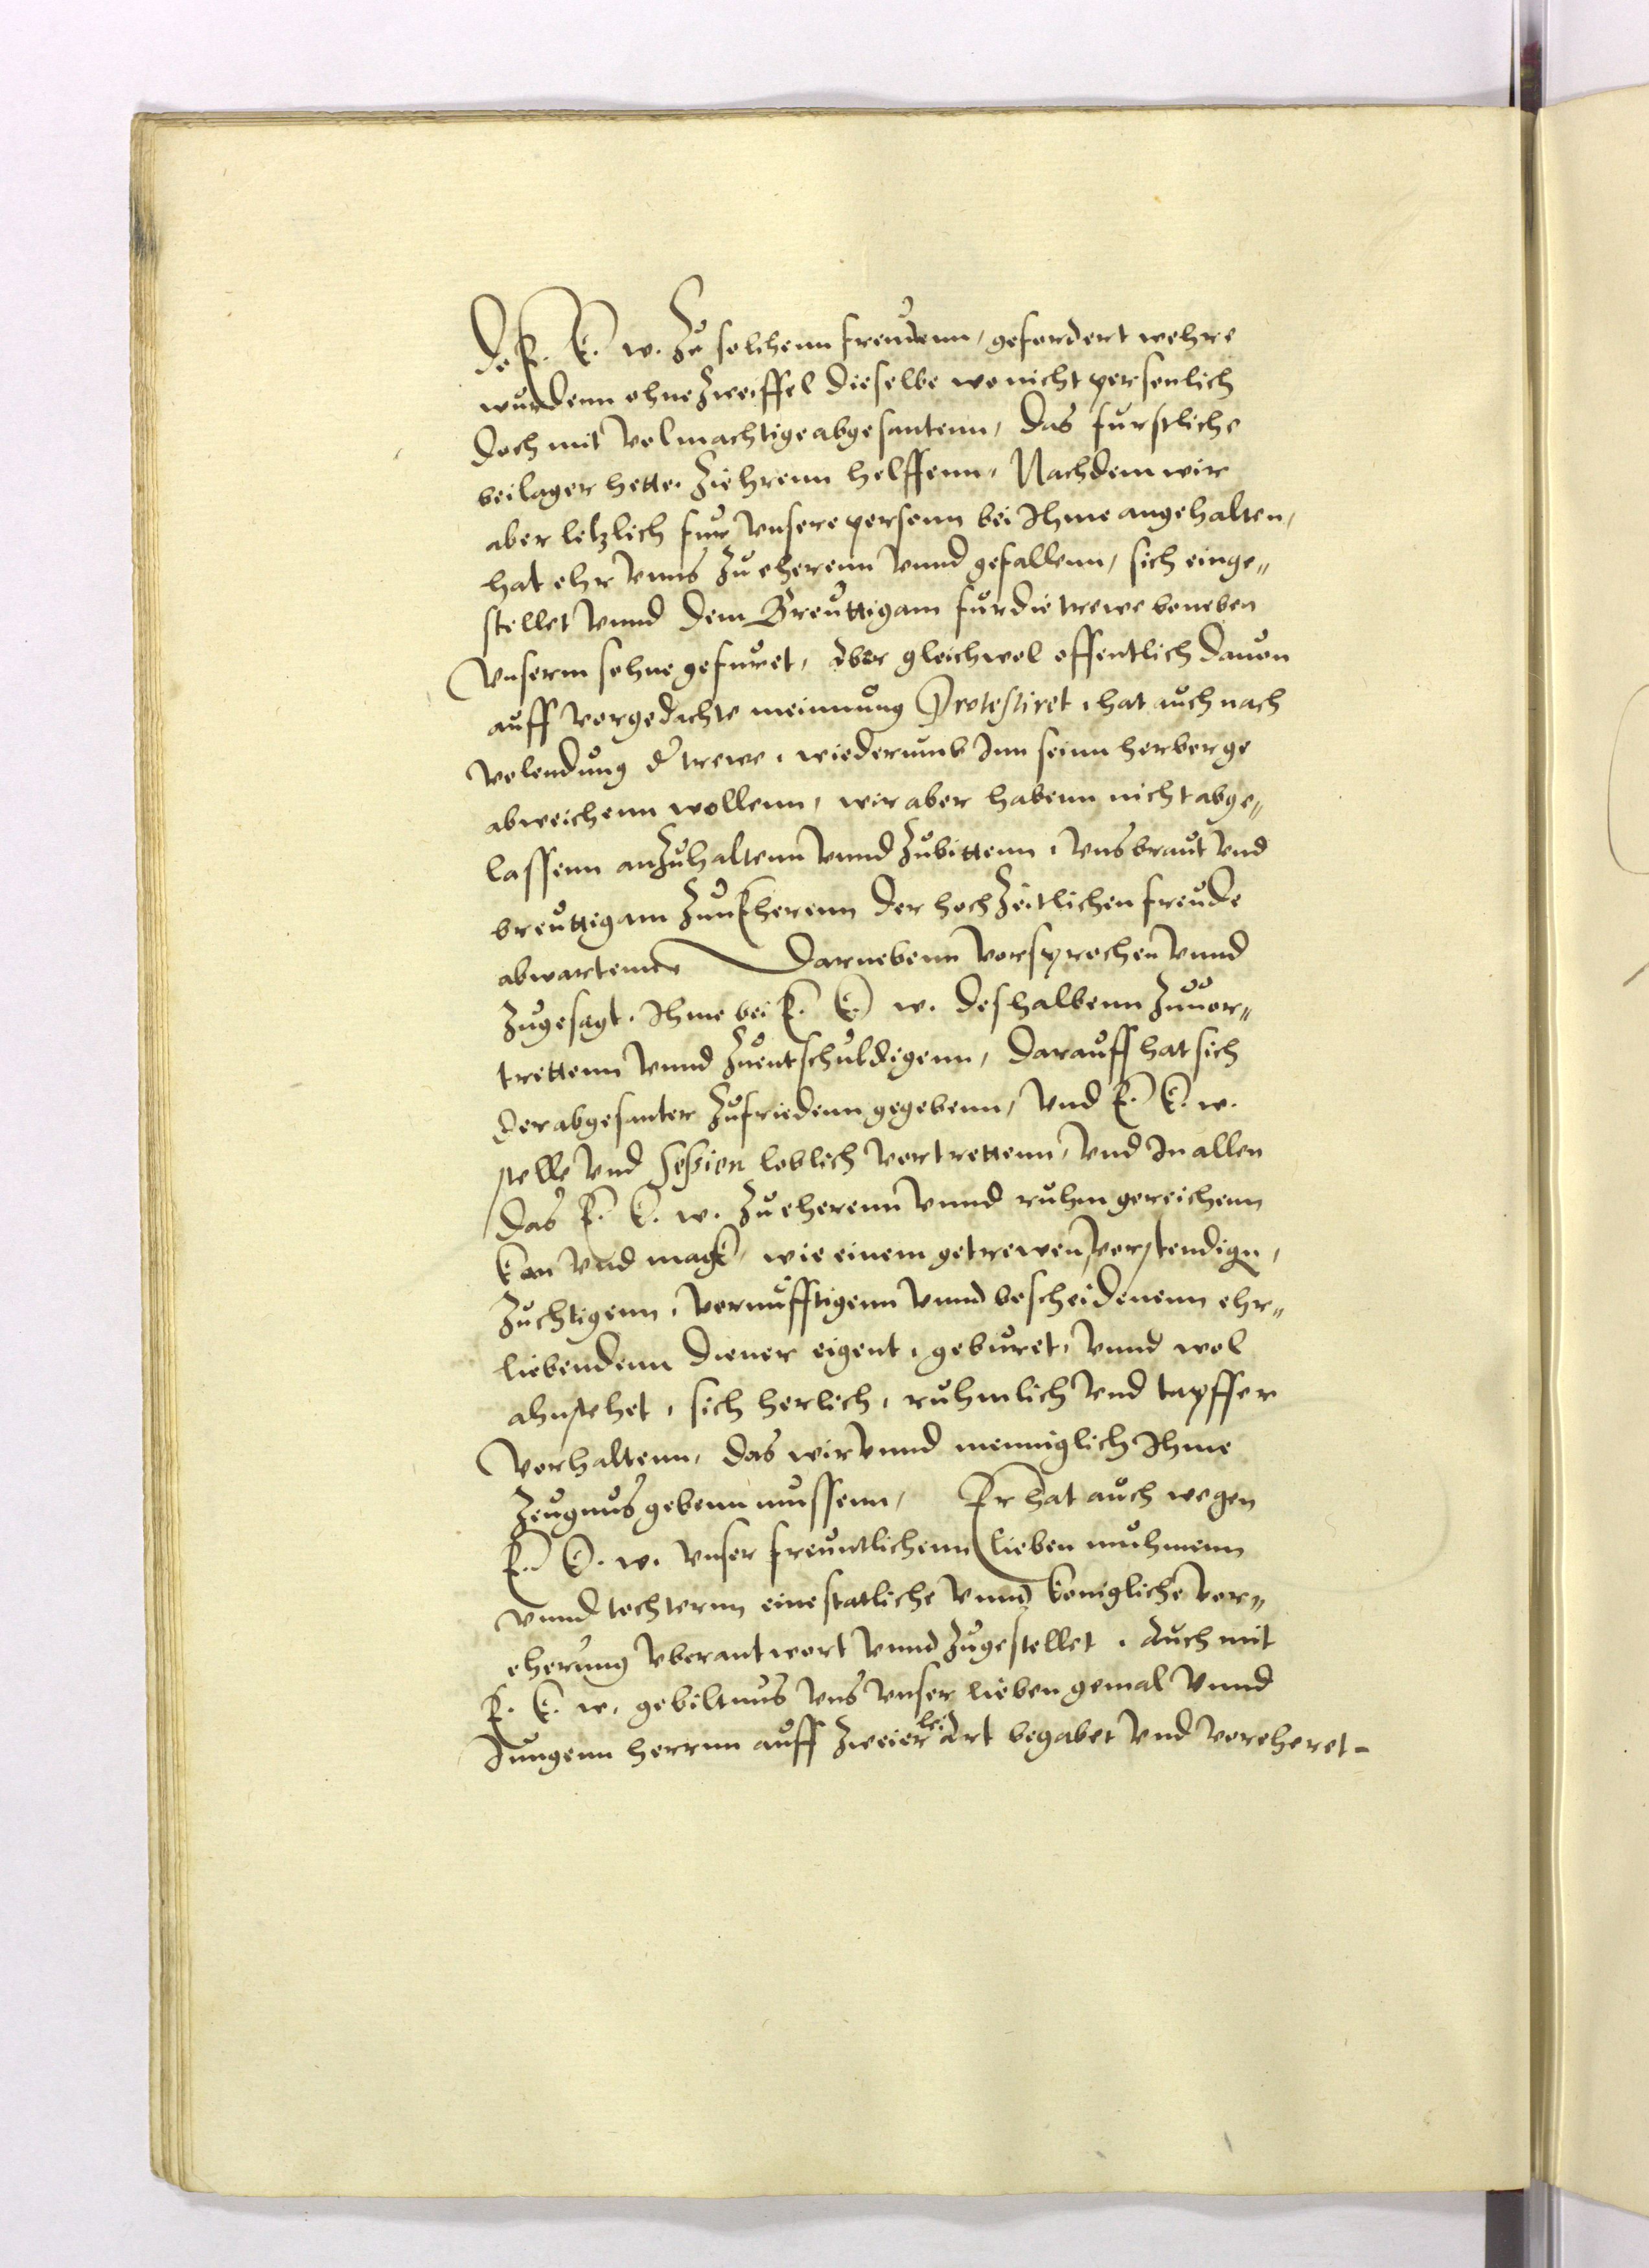 Do E. K. w. Zu solchenn freudenn, gefordert wehre
wurdenn ohne Zweiffel dieselbe wo nicht personlich
doch mit volmachtige abgesantenn, das furstliche
beilager hette, Ziehrenn helffenn, Nachdem wir
aber letzlich fur vnsere personn bei Ihme angehalten,
hat ehr vnns Zu eherenn vnnd gefallenn, sich einge„
stellet vnnd dem Breuttigam fur die trewe beneben
vnserm sohne gefuret, Aber gleichwol offentlich dauon
auff vorgedachte meinnung Protestiret, hat auch nach
volendung d' trewe, wiederumb Inn seinn herberge
abweichenn wollenn, wir aber habenn nicht abge„
lassenn anZuhaltenn vnnd Zubittenn, vns braut vnd
breuttigam Zun Eherenn der hochZeitlichen freude
abwartenn, Darnebenn vorsprochen vnnd
Zugesagt, Ihme bei E. K. w. deshalbenn Zuuor„
trettenn vnnd Zuentschuldigenn, darauff hat sich
der abgesanter Zufriedenn gegebenn, vnd E. K. w.
stelle vnd Session loblich vortrettenn, vnd In allen
das E. K. w. Zu eherenn vnnd ruhm gereichenn
kan vnd magk, wie einem getrewen, vorstendign,
Zuchtigenn, vornufftigenn vnnd bescheidenenn ehr„
liebendenn diener eigent, geburet, vnnd wol
ahnstehet, sich herlich, ruhmlich vnd tapffer
vorhaltenn, das wir vnnd menniglich Ihme
Zeugnus gebenn mussenn, Er hat auch wegen
E. K. w. vnser freuntlichenn lieben muhmenn
vnnd tochternn eine statliche vnnd konigliche vor„
eherung vberantwort vnnd Zugestellet, Auch mit
E. K. w. gebiltnus vns vnser lieben gemal vnnd
Jungenn herrnn auff Zweierlei Art begabet vnd voreheret -